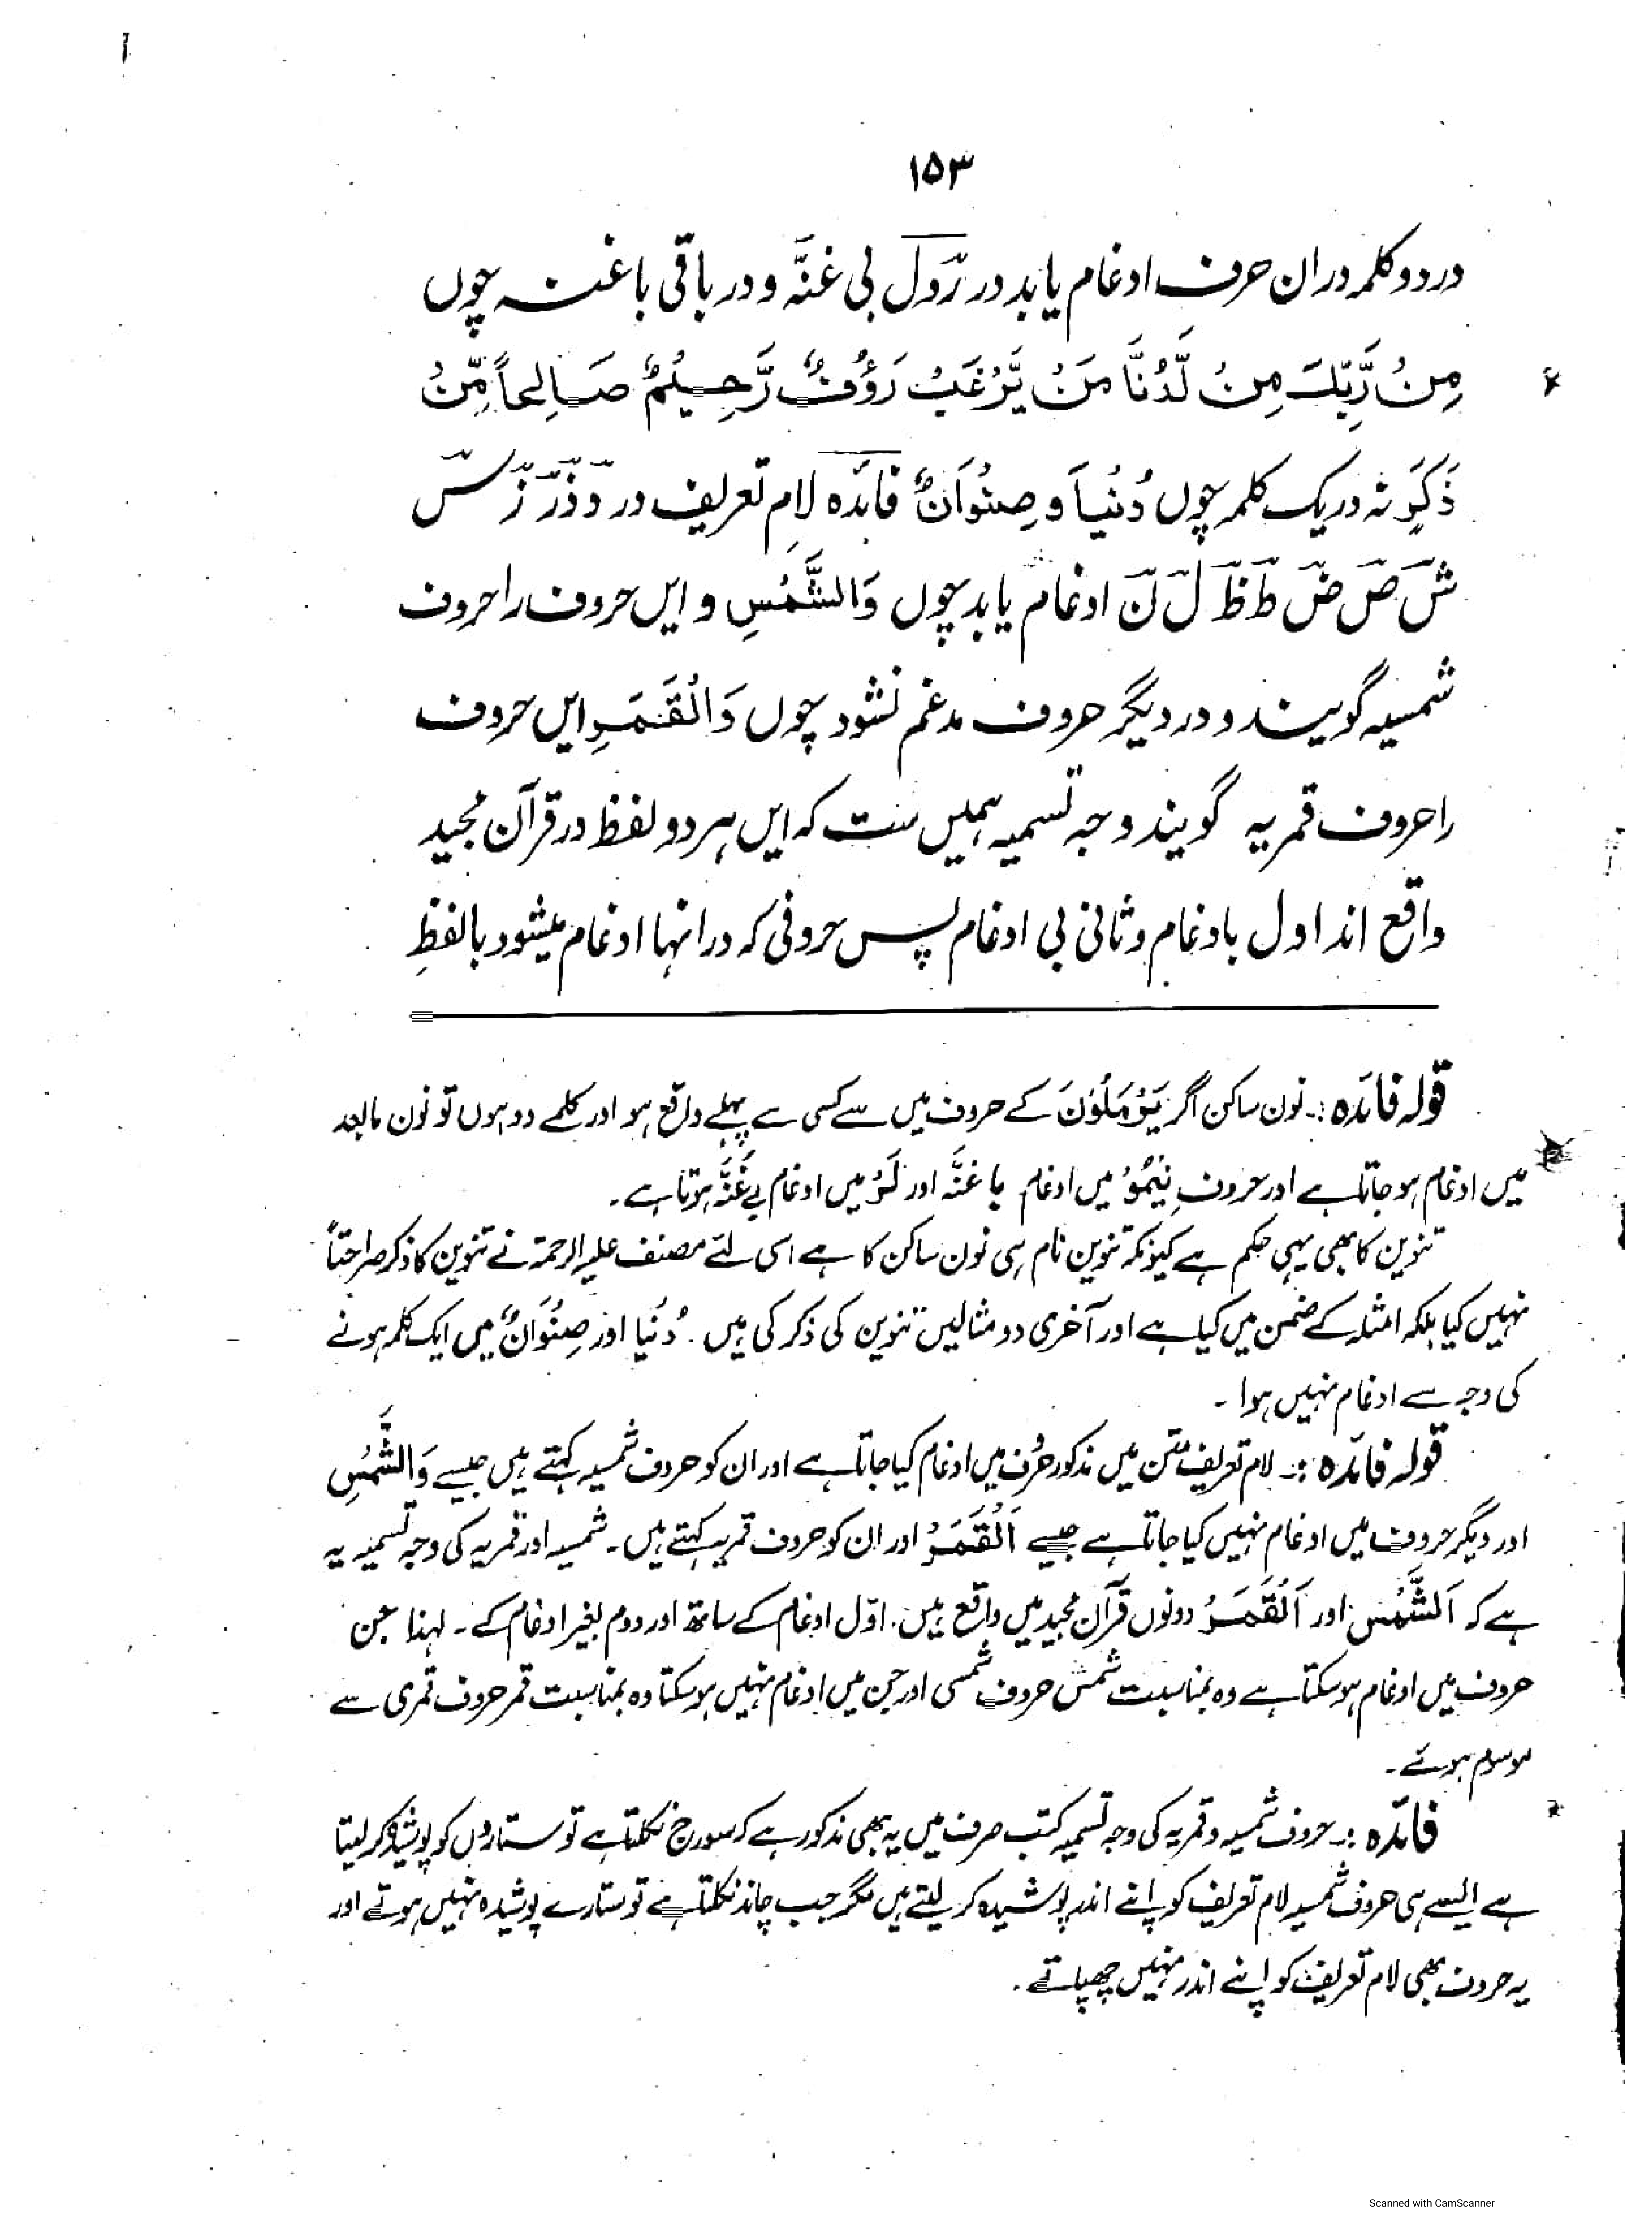 ۱۵۳
در دو کلمہ دران حرف ادغام یابد در رَ وَلَ بی غنَّہ و در باقی با غنہ چوں
مِنْ رَّبِّكَ مِنْ لَّدُنَّا مَنْ يَّرْغَبُ رَؤُفٌ رَّحِيْمٌ صَالِحاً مِّنْ
ذَكَرٍ نہ در یک کلمہ چوں دُنْیَا و صِنْوَانٌ فائدہ لامِ تعریف در دَ ذَ رَ زَ سَ
شَ صَ ضَ طَ ظَ لَ نَ ادغام یابد چوں وَالشَّمْسِ و ایں حروف را حروف
شمسیہ گویند و در دیگر حروف مدغم نشود چوں وَالْقَمَرِ ایں حروف
را حروف قمریہ گویند وجہ تسمیہ ہمیں ست کہ ایں ہر دو لفظ در قرآن مجید
واقع اند اول بادغام و ثانی بی ادغام پس حروفی کہ در انہا ادغام میشود بالفظِ
قولہ فائدہ :۔ نون ساکن اگر یَرْمَلُوْنَ کے حروف میں سے کسی سے پہلے واقع ہو اور کلمے دو ہوں تو نون مابعد
میں ادغام ہو جاتا ہے اور حروفِ یَنْمُوْ میں ادغام با غنَّہ اور لَرْ میں ادغام بے غنَّہ ہوتا ہے۔
تنوین کا بھی یہی حکم ہے کیونکہ تنوین نام ہی نون ساکن کا ہے اسی لئے مصنف علیہ الرحمۃ نے تنوین کا ذکر صراحتاً
نہیں کیا بلکہ امثلہ کے ضمن میں کیا ہے اور آخری دو مثالیں تنوین کی ذکر کی ہیں۔ دُنْیَا اور صِنْوَانٌ میں ایک کلمہ ہونے
کی وجہ سے ادغام نہیں ہوا۔
قولہ فائدہ :۔ لام تعریف متن میں مذکور حروف میں ادغام کیا جاتا ہے اور ان کو حروف شمسیہ کہتے ہیں جیسے وَالشَّمْسِ
اور دیگر حروف میں ادغام نہیں کیا جاتا ہے جیسے اَلْقَمَرُ اور ان کو حروف قمریہ کہتے ہیں۔ شمسیہ اور قمریہ کی وجہ تسمیہ یہ
ہے کہ اَلشَّمْس اور اَلْقَمَرُ دونوں قرآن مجید میں واقع ہیں۔ اوّل ادغام کے ساتھ اور دوم بغیر ادغام کے۔ لہٰذا جن
حروف میں ادغام ہو سکتا ہے وہ بمناسبت شمس حروف شمسی اور جن میں ادغام نہیں ہو سکتا وہ بمناسبت قمر حروف قمری سے
موسوم ہوئے۔
فائدہ :۔ حروف شمسیہ و قمریہ کی وجہ تسمیہ کتب صرف میں یہ بھی مذکور ہے کہ سورج نکلتا ہے تو ستاروں کو پوشیدہ کر لیتا
ہے ایسے ہی حروف شمسیہ لام تعریف کو اپنے اندر پوشیدہ کر لیتے ہیں مگر جب چاند نکلتا ہے تو ستارے پوشیدہ نہیں ہوتے اور
یہ حروف بھی لام تعریف کو اپنے اندر نہیں چھپاتے۔
Scanned with CamScanner